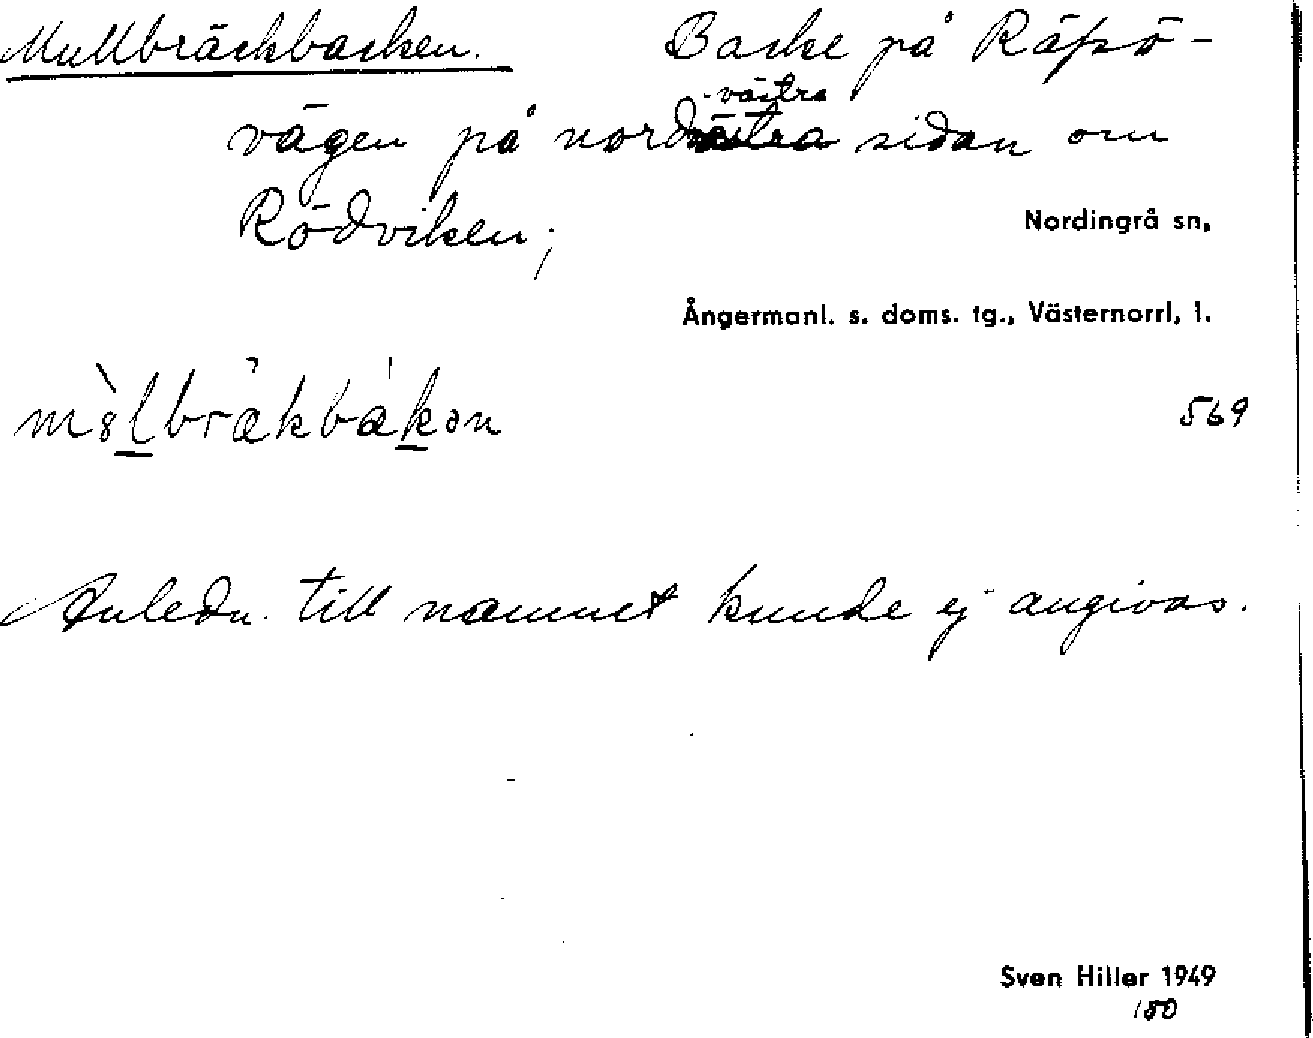 Mullbräckbacken. Backe på Räfsö-
västra
vägen på nordvästra sidan om
Rödviken;
Nordingrå sn,
Ångermanl. s. doms. tg., Västernorrl, l.
569
Anledn. till namnet kunde ej angivas.
Sven Hiller 1949
180